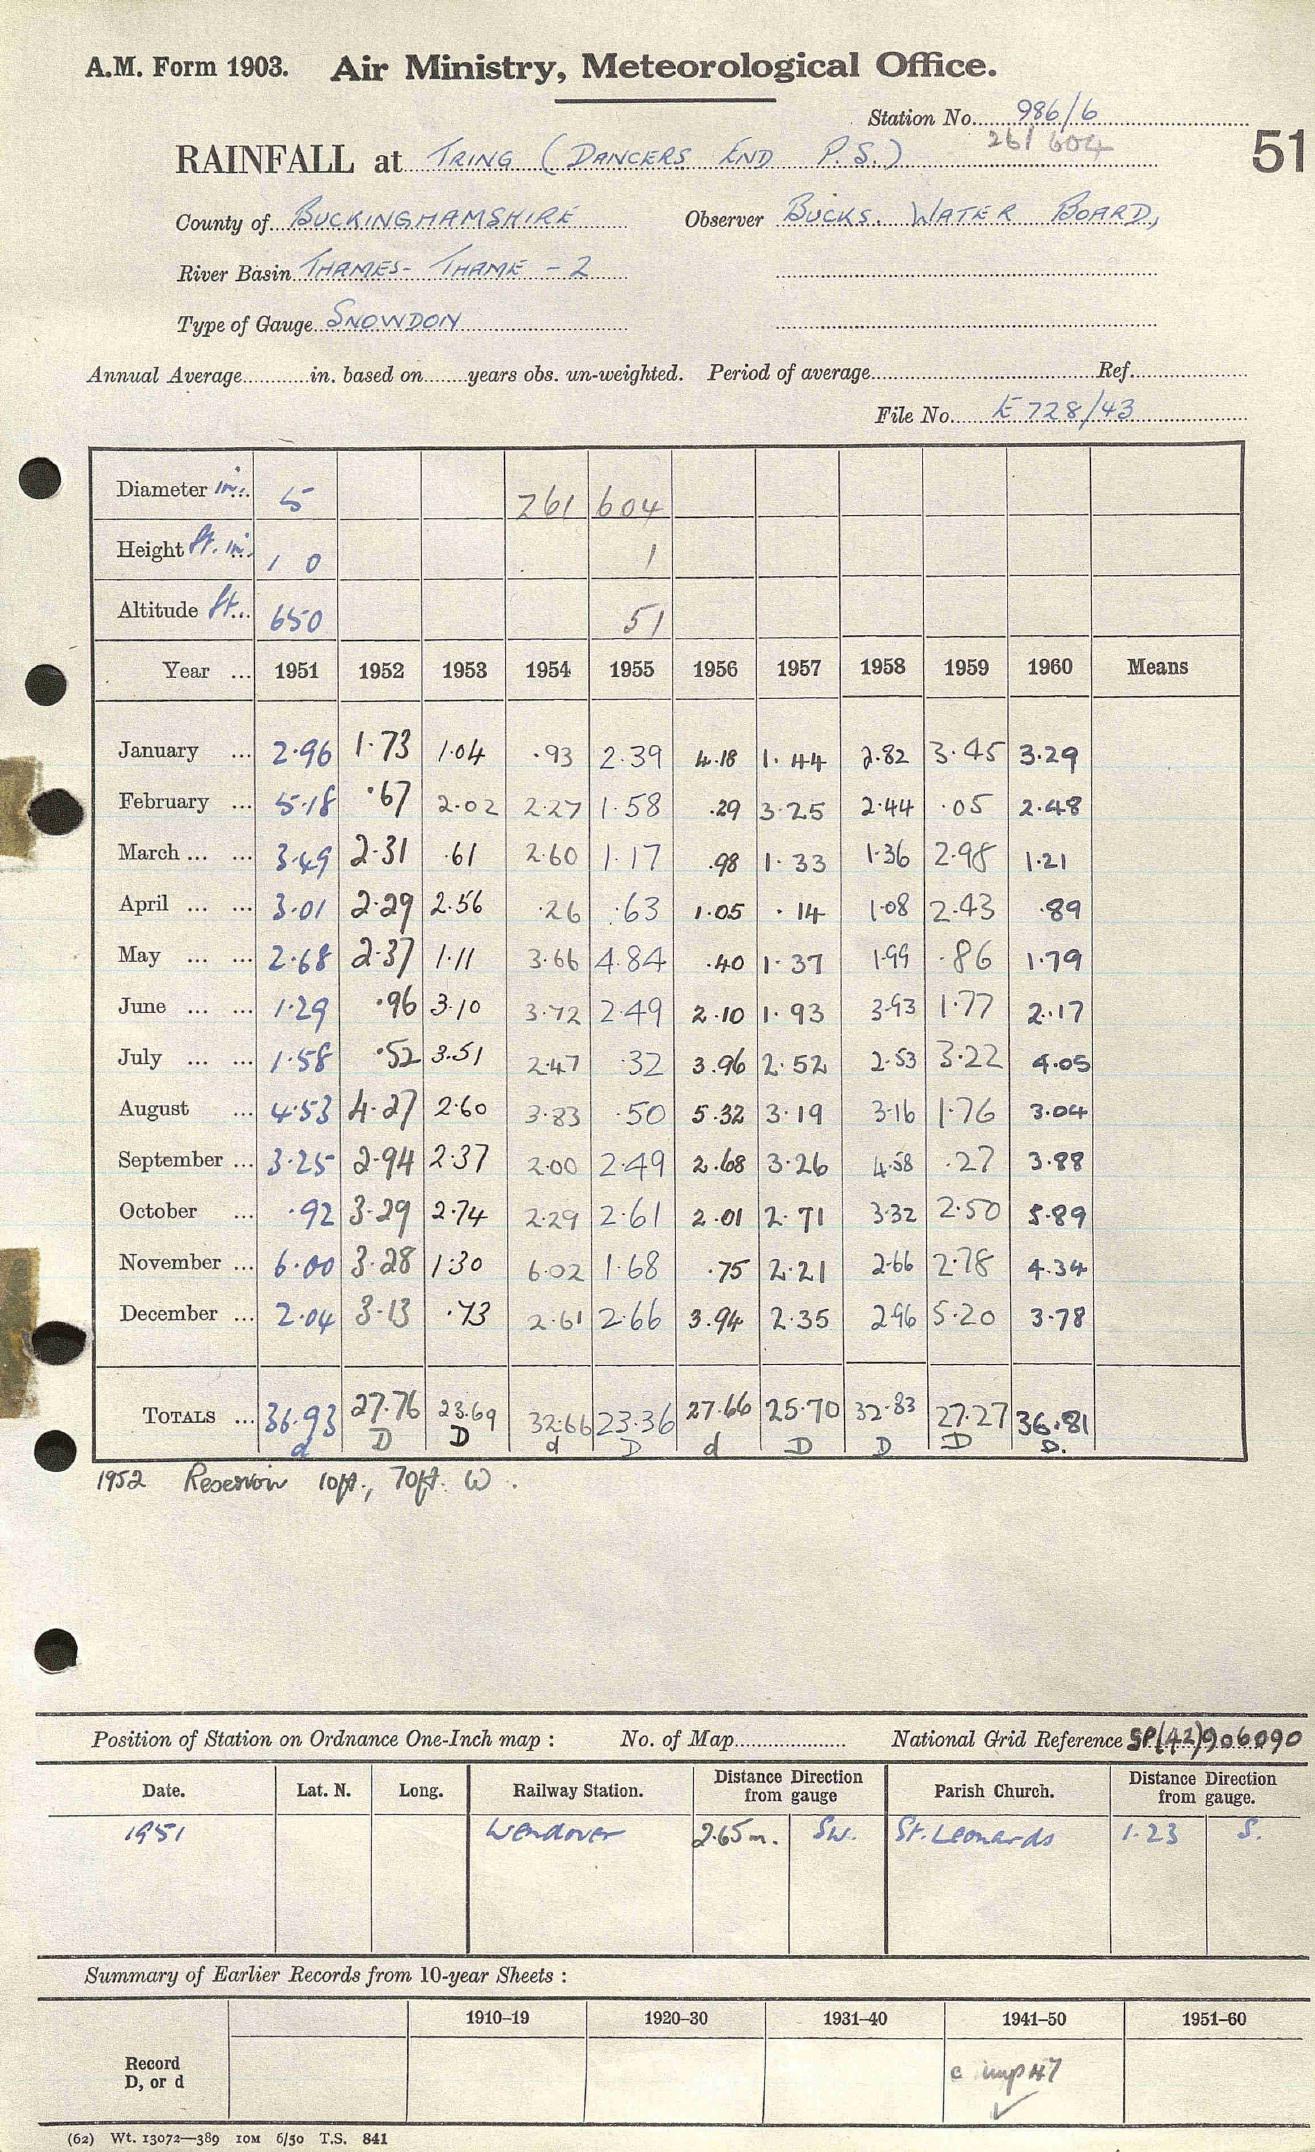 A.M. Form 1903. Air Ministry, Meteorological Office.
Station No. 986/6
261 604
51
RAINFALL at TRING (DANCERS END P.S.)
County of BUCKINGHAMSHIRE Observer BUCKS. WATER BOARD,
River Basin THAMES - THAME - 2
Type of Gauge SNOWDON
Annual Average............in. based on........years obs. un-weighted. Period of average............Ref............
File No. E 728/43
Diameter in. 5 261 604
Height ft. in. 1 0 1
Altitude ft. 650 51
Year ... 1951 1952 1953 1954 1955 1956 1957 1958 1959 1960 Means
January ... 2.96 1.73 1.04 .93 2.39 4.18 1.44 2.82 3.45 3.29
February ... 5.18 .67 2.02 2.27 1.58 .29 3.25 2.44 .05 2.48
March ... ... 3.49 2.31 .61 2.60 1.17 .98 1.33 1.36 2.98 1.21
April ... ... 3.01 2.29 2.56 .26 .63 1.05 .14 1.08 2.43 .89
May ... ... 2.68 2.37 1.11 3.66 4.84 .40 1.37 1.99 .86 1.79
June ... ... 1.29 .96 3.10 3.72 2.49 2.10 1.93 3.93 1.77 2.17
July ... ... 1.58 .52 3.51 2.47 .32 3.96 2.52 2.53 3.22 4.05
August ... 4.53 4.27 2.60 3.83 .50 5.32 3.19 3.16 1.76 3.04
September ... 3.25 2.94 2.37 2.00 2.49 2.68 3.26 4.58 .27 3.88
October ... .92 3.29 2.74 2.29 2.61 2.01 2.71 3.32 2.50 5.89
November ... 6.00 3.28 1.30 6.02 1.68 .75 2.21 2.66 2.78 4.34
December ... 2.04 3.13 .73 2.61 2.66 3.94 2.35 2.96 5.20 3.78
TOTALS ... 36.93 27.76 23.69 32.66 23.36 27.66 25.70 32.83 27.27 36.81
d D D d D d D D D D.
1952 Reservoir 10ft., 70ft. W.
Position of Station on Ordnance One-Inch map : No. of Map............ National Grid Reference SP(42)906090
Date. Lat. N. Long. Railway Station. Distance Direction from gauge Parish Church. Distance Direction from gauge.
1951 Wendover 2.65m. SW. St. Leonards 1.23 S.
Summary of Earlier Records from 10-year Sheets :
1910–19 1920–30 1931–40 1941–50 1951–60
Record
D, or d
c imp 47
(62) Wt. 13072—389 10M 6/50 T.S. 841